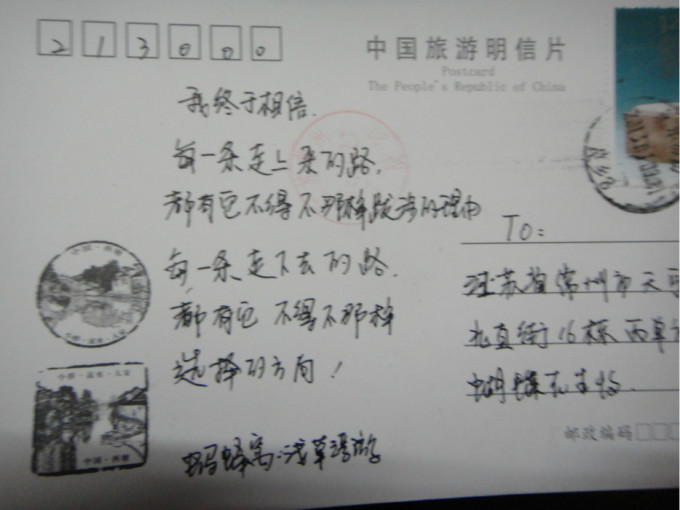 213000
中国旅游明信片
Postcard
The People's Republic of China
我终于相信.
每一条走上来的路,
都有它不得不那样跋涉的理由
每一条走下去的路.
都有它不得不那样
选择的方向!
蚂蜂窝:浅草
TO:
江苏省常州市天
北直街16栋丙单
蝴蝶 收
邮政编码